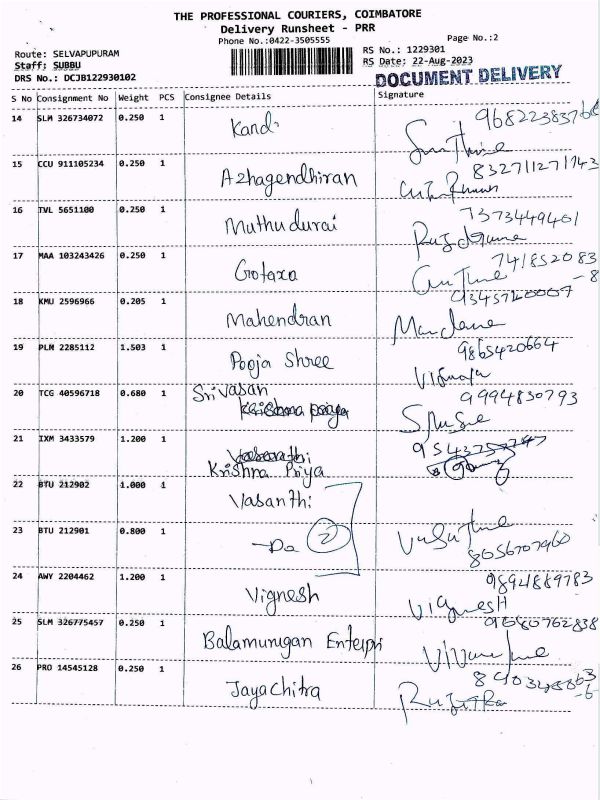 THE PROFESSIONAL COURIERS, COIMBATORE
Delivery Runsheet - PRR
Phone No.:0422-3505555
Page No.:2
Route: SELVAPUPURAM
RS No.: 1229301
Staff: SUBBU
RS Date: 22-Aug-2023
DRS No.: DCJB122930102
DOCUMENT DELIVERY
S No Consignment No Weight PCS Consignee Details Signature
14 SLM 326734072 0.250 1
15 CCU 911105234 0.250 1 Azhagendhiran
16 TVL 5651100 0.250 1 Muthudurai 7373449401
17 MAA 103243426 0.250 1 741852083
18 KMU 2596966 0.205 1 Mahendran
19 PLM 2285112 1.503 1 Pooja Shree 9865420664
20 TCG 40596718 0.680 1 Srivasan 9994830793
21 IXM 3433579 1.200 1 Krishna Priya
22 BTU 212902 1.000 1 Vasanthi
23 BTU 212901 0.800 1 - Do 2 8056707960
24 AWY 2204462 1.200 1 Vignesh VignesH
25 SLM 326775457 0.250 1 Balamurugan Enterpri
26 PRO 14545128 0.250 1 Jayachitra